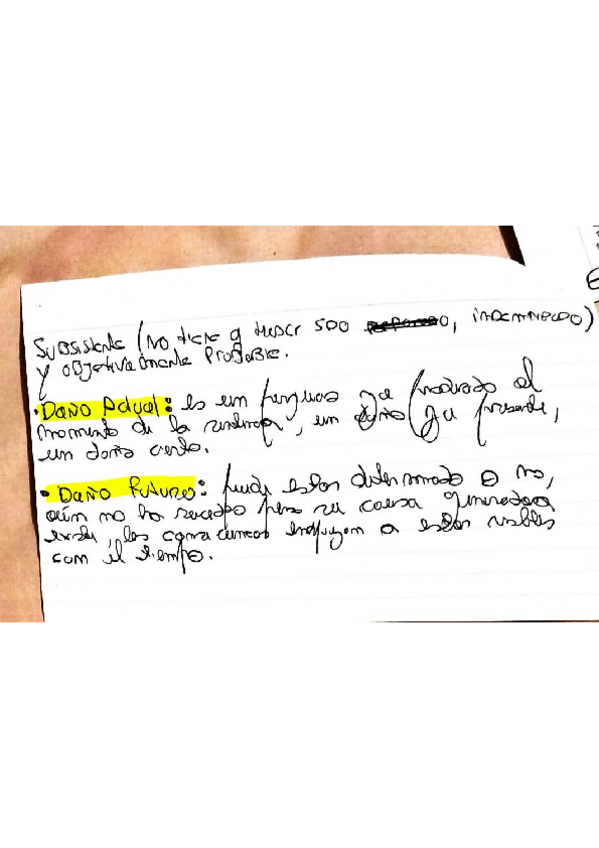 Subsistente (no tiene q haber sido, indemnizado)
y objetivamente probable.
• Daño Actual: es un perjuicio ya producido al
momento de la sentencia, un daño ya presente,
un daño cierto.
• Daño Futuro: puede estar determinado o no,
aún no ha sucedido pero su causa generadora
existe, las consecuencias empiezan a estar visibles
con el tiempo.